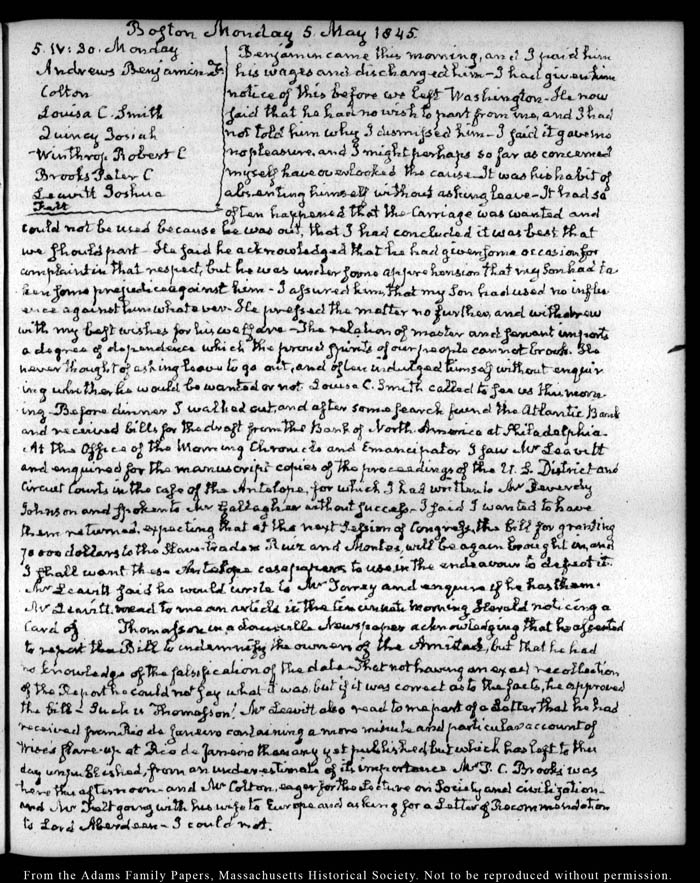 Boston Monday 5. May 1845.
5. IV: 30. Monday
Andrews Benjamin F.
Colton
Louisa C. Smith
Quincy Josiah
Winthrop Robert C
Brooks Peter C
Leavitt Joshua
Fait
Benjamin came this morning, and I paid him
his wages and discharged him – I had given him
notice of this before we left Washington – He now
said that he had no wish to part from me, and I had
not told him why I dismissed him – I said it gave me
no pleasure, and I might perhaps so far as concerned
myself have overlooked the cause – It was his habit of
absenting himself without asking leave – It had so
often happened that the Carriage was wanted and
could not be used because he was out, that I had concluded it was best that
we should part – He said he acknowledged that he had given some occasion for
complaint in that respect, but he was under some apprehension that my Son had ta-
ken some prejudice against him – I assured him, that my Son had used no influ-
ence against him whatever – He pressed the matter no further, and withdrew
with my best wishes for his welfare – The relation of master and servant imports
a degree of dependence which the proud spirits of our people cannot brook. He
never thought of asking leave to go out, and often indulged himself without enquir-
ing whether he would be wanted or not. Louisa C. Smith called to see us this morn-
ing – Before dinner I walked out, and after some search found the Atlantic Bank
and received bills for the draft from the Bank of North America at Philadelphia –
At the Office of the Morning Chronicle and Emancipator I saw Mr Leavitt
and enquired for the manuscript copies of the proceedings of the U. S. District and
Circuit Courts in the case of the Antelope, for which I had written to Mr Beverdy
Johnson and spoken to Mr Gallagher without success – I said I wanted to have
them returned, expecting that at the next Session of Congress, the bill for granting
70 000 dollars to the Slave-traders Ruiz and Montes, will be again brought in, and
I shall want these Antelope case papers to use in the endeavour to defeat it.
Mr Leavitt said he would write to Mr Torrey and enquire if he has them.
Mr Leavitt read to me an article in the Cincinnati Morning Herald noticing a
Card of Thomasson in a Louisville Newspaper acknowledging that he assented
to report the Bill to indemnify the owners of the Amistad, but that he had
no knowledge of the falsification of the date – That not having an exact recollection
of the Report he could not say what it was, but if it was correct as to the facts, he approved
the bill – Such is Thomasson! Mr Leavitt also read to me part of a Letter that he had
received from Rio de Janeiro containing a more minute and particular account of
Wise's flare-up at Rio de Janeiro than any yet published but which has left to this
day unpublished, from an underestimate of its importance. Mr P. C. Brooks was
here this afternoon – and Mr Colton, eager for the Lecture on Society and civilization –
and Mr Fait going with his wife to Europe and asking for a Letter of Recommendation
to Lord Aberdeen – I could not.
From the Adams Family Papers, Massachusetts Historical Society. Not to be reproduced without permission.